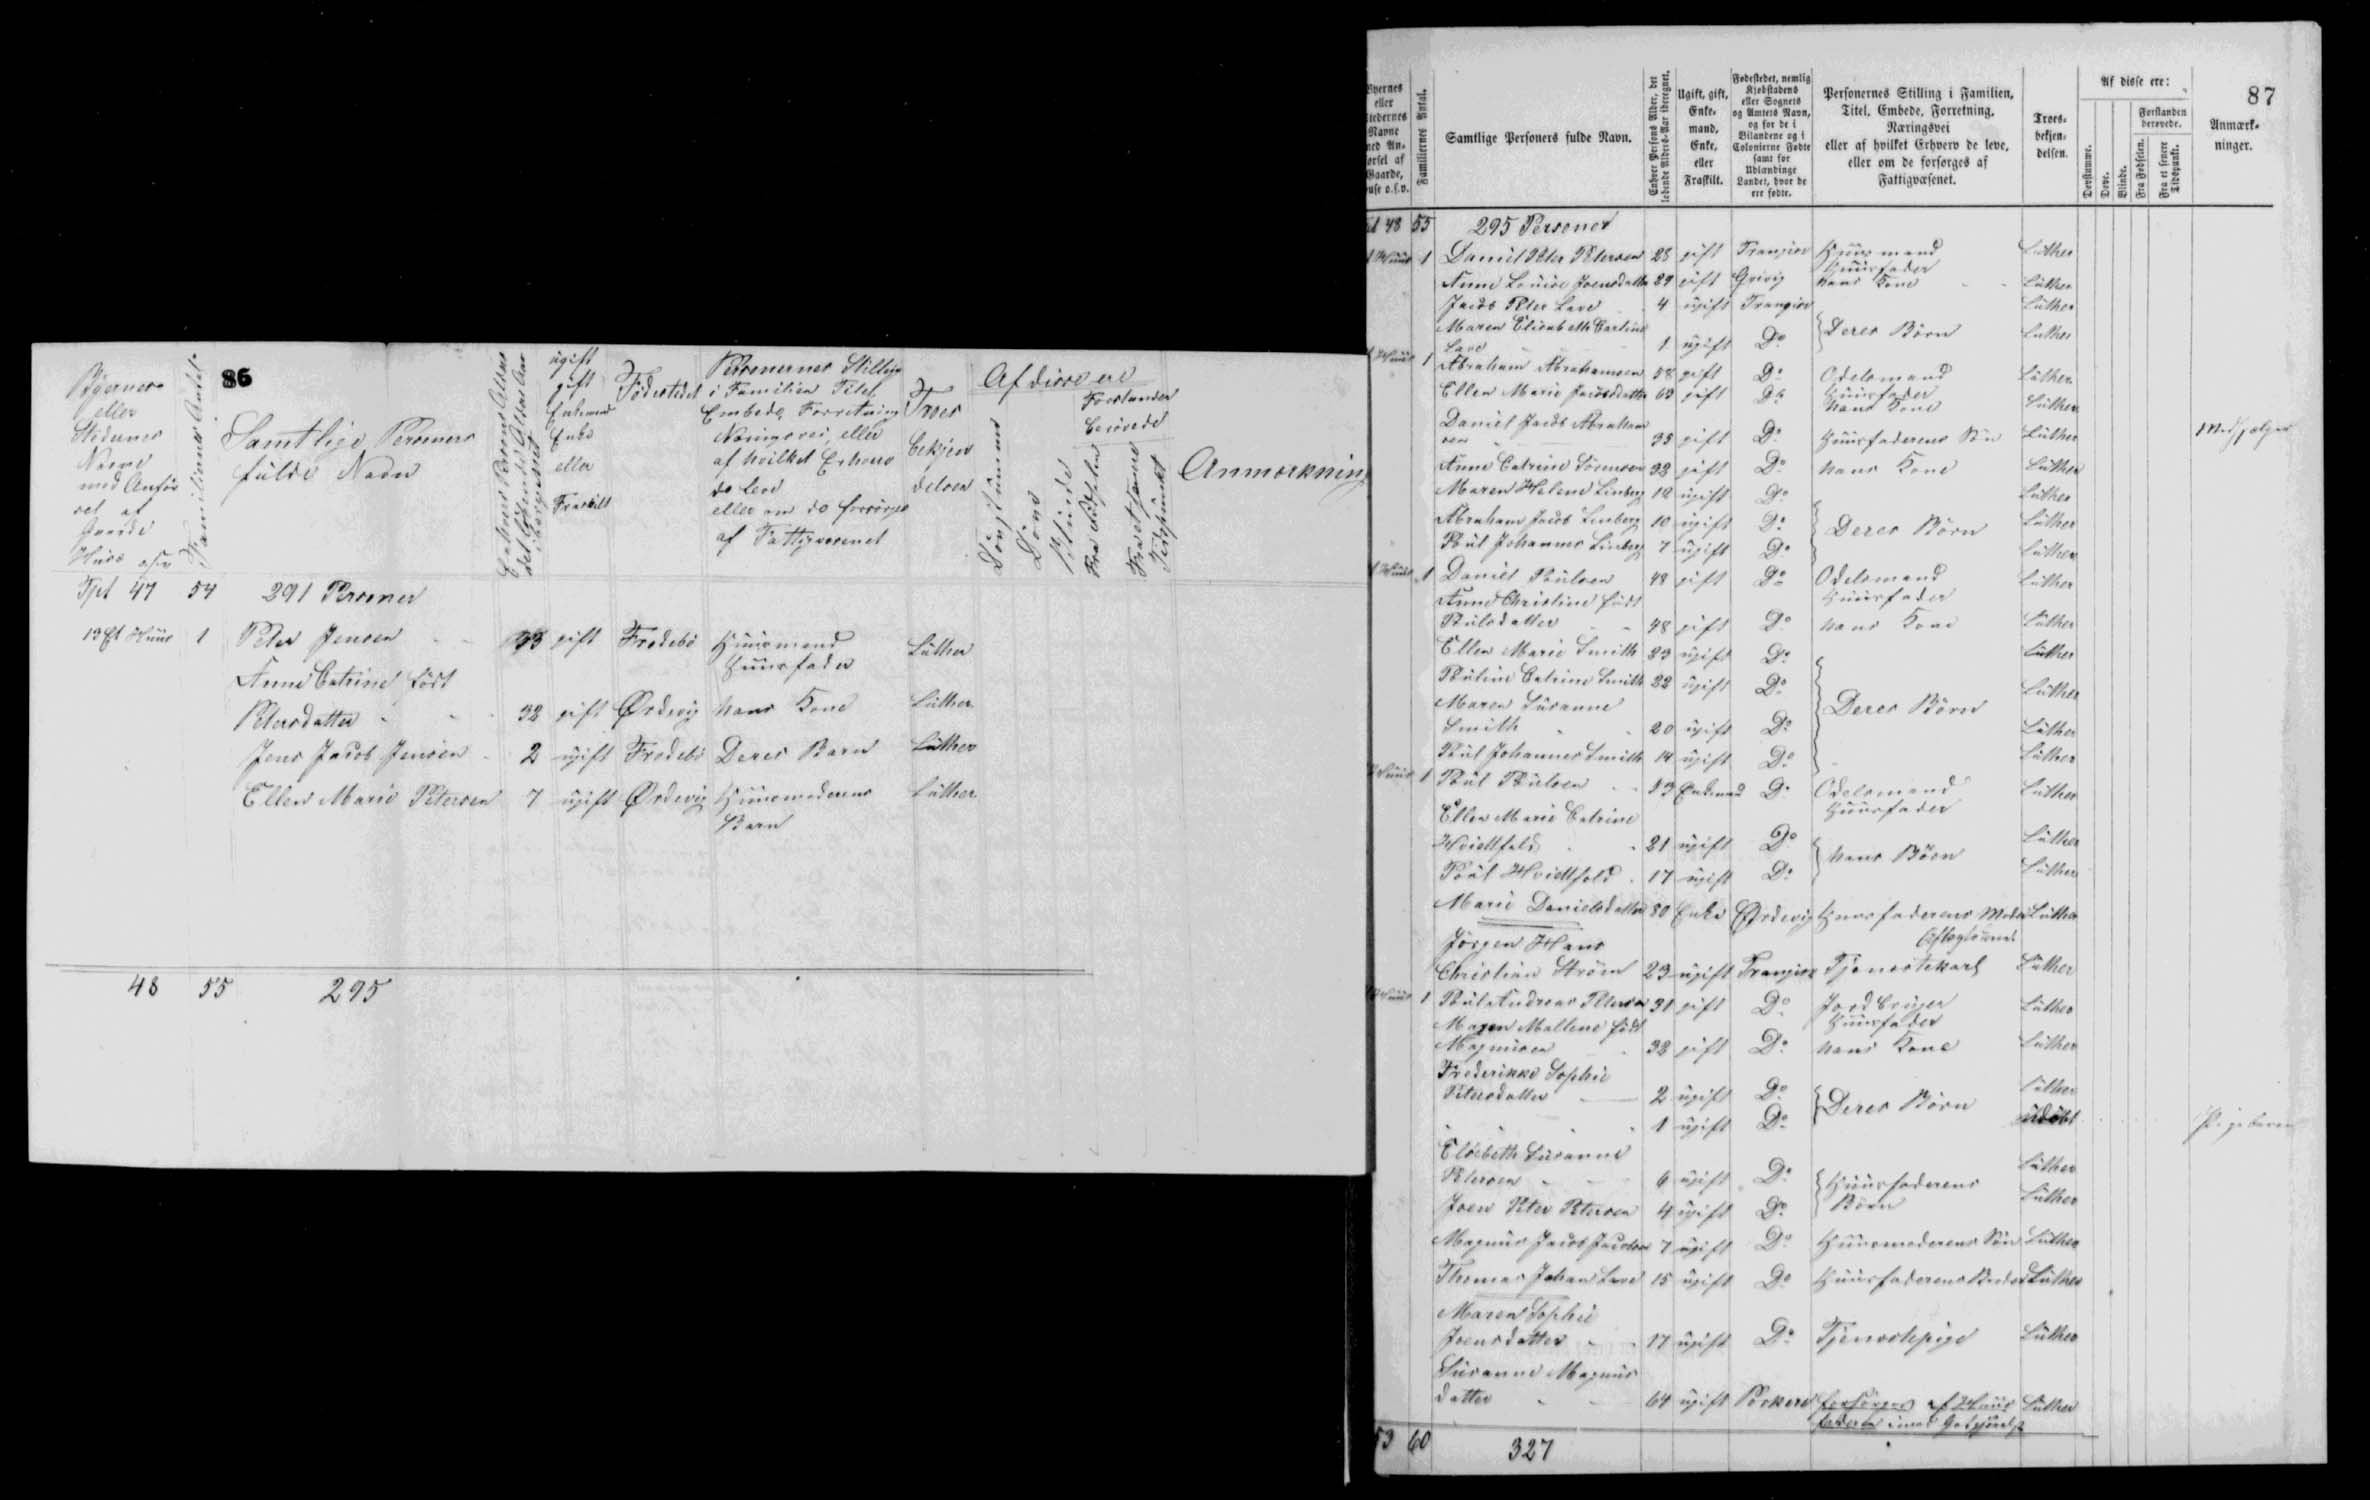 86
Byernes
eller
Stedernes
Navne
med Anfør
sel af
Gaarde
Huse osv
Familiernes Antal
Samtlige Personers
fulde Navn
Enhver Persons Alder
det løbende Alders Aar
iberegnet
ugift
gift
Enkemand
Enke
eller
Fraskilt
Födestedet
Personernes Stilling
i Familien Titel
Embede, Forretning
Næringsvei, eller
af hvilket Erhverv
de leve
eller om de forsørges
af Fattigvæsenet
Troes
bekjen
delsen
Af disse ere
Forstanden
berøvede
Døvstumme
Døve
Blinde
Fra Fødselen
Fra et senere
Tidspunkt
Anmærkning
Tpt 47 54 291 Personer
13 Et Huus 1 Peter Jensen 33 gift Frodebö Huusmand Luther
Huusfader
Anne Catrine födt
Petersdatter 32 gift Ørdevig hans Kone Luther
Jens Jacob Jensen 2 ugift Frodebö Deres Barn Luther
Ellen Marie Petersen 7 ugift Ørdevig Huusmoderens Luther
Barn
48 55 295
87
Byernes
eller
Stedernes
Navne
med An-
førsel af
Gaarde,
Huse o.s.v.
Familiernes Antal.
Samtlige Personers fulde Navn.
Enhver Persons Alder, det
løbende Alders-Aar iberegnet.
Ugift, gift,
Enke-
mand,
Enke,
eller
Fraskilt.
Fødestedet, nemlig
Kjøbstadens
eller Sognets
og Amtets Navn,
og for de i
Bilandene og i
Colonierne Fødte
samt for
Udlændinge
Landet, hvor de
ere fødte.
Personernes Stilling i Familien,
Titel, Embede, Forretning,
Næringsvei
eller af hvilket Erhverv de leve,
eller om de forsørges af
Fattigvæsenet.
Troes-
bekjen-
delsen.
Af disse ere:
Døvstumme.
Døve.
Blinde.
Forstanden
berøvede.
Fra Fødselen.
Fra et senere
Tidspunkt.
Anmærk-
ninger.
48 55 295 Personer
Huus 1 Daniel Peter Petersen 28 gift Trangisv Huusmand Luther
Huusfader
Anne Louise Joensdatter 29 gift hans Kone Luther
Jacob Peter 4 ugift Trangisv Luther
Maren Elisabeth
1 ugift Do Deres Börn Luther
Huus 1 Abraham Abrahamsen 58 gift Do Odelsmand Luther
Huusfader
Ellen Marie Jacobsdatter 63 gift Do hans Kone Luther
Daniel Jacob Abraham
sen 35 gift Do Huusfaderens Sön Luther
Anne Catrine Sörensen 32 gift Do hans Kone Luther
Maren Helene Linberg 12 ugift Do Luther
Abraham Jacob Linberg 10 ugift Do Deres Börn Luther
Poul Johannes Linberg 7 ugift Do Luther
Huus 1 Daniel Poulsen 48 gift Do Odelsmand Luther
Huusfader
Anne Christine födt
Poulsdatter 48 gift Do hans Kone Luther
Ellen Marie Smith 23 ugift Do Luther
Pouline Catrine Smith 22 ugift Do Luther
Maren Susanne
Smith 20 ugift Do Deres Börn Luther
Poul Johannes Smith 14 ugift Do Luther
Huus 1 Poul Poulsen 53 Enkemand Do Odelsmand Luther
Huusfader
Ellen Marie Catrine
21 ugift Do Luther
Poul 17 ugift Do hans Börn Luther
Marie Danielsdatter 80 Enke Ørdevig Huusfaderens Moder Luther
Jörgen Hans
Christian Ström 23 ugift Trangisv Tjenestekarl Luther
Huus 1 Poul Andreas Petersen 31 gift Do Jordbruger Luther
Huusfader
Maren Mallene födt
Magnusen 32 gift Do hans Kone Luther
Frederikke Sophie
Petersdatter 2 ugift Do Luther
1 ugift Do Deres Börn udöbt Pigebarn
Elsebeth Susanne
Petersen 6 ugift Do Huusfaderens Luther
Joen Peter Petersen 4 ugift Do Börn Luther
Magnus Jacob Jacobsen 7 ugift Do Huusmoderens Sön Luther
Thomas Johan 15 ugift Do Huusfaderens Broder Luther
Maren Sophie
Joensdatter 17 ugift Do Tjenestepige Luther
Susanne Magnus
datter 64 ugift Porkere forsörges af Huus Luther
faderen
53 60 327